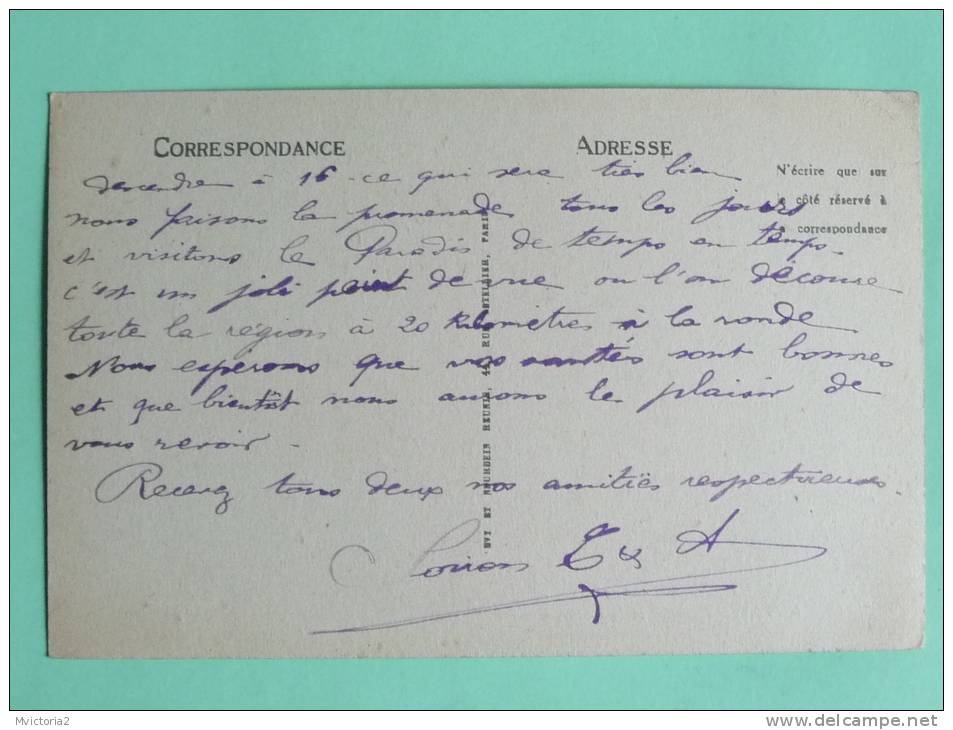 CORRESPONDANCE
ADRESSE
N'écrire que sur
le côté réservé à
la correspondance
descendre à 16 - ce qui sera très bien
nous faisons la promenade tous les jours
et visitons le Paradis de temps en temps -
c'est un joli point de vue ou l'on découvre
toute la région à 20 Kilomètres à la ronde
Nous espérons que vos santés sont bonnes
et que bientôt nous aurons le plaisir de
vous revoir -
Recevez tous deux nos amitiés respectueuses.
E & A
NEURDEIN RÉUNIS, 44, RUE LETELLIER, PARIS
Mvictoria2
delcampe.net